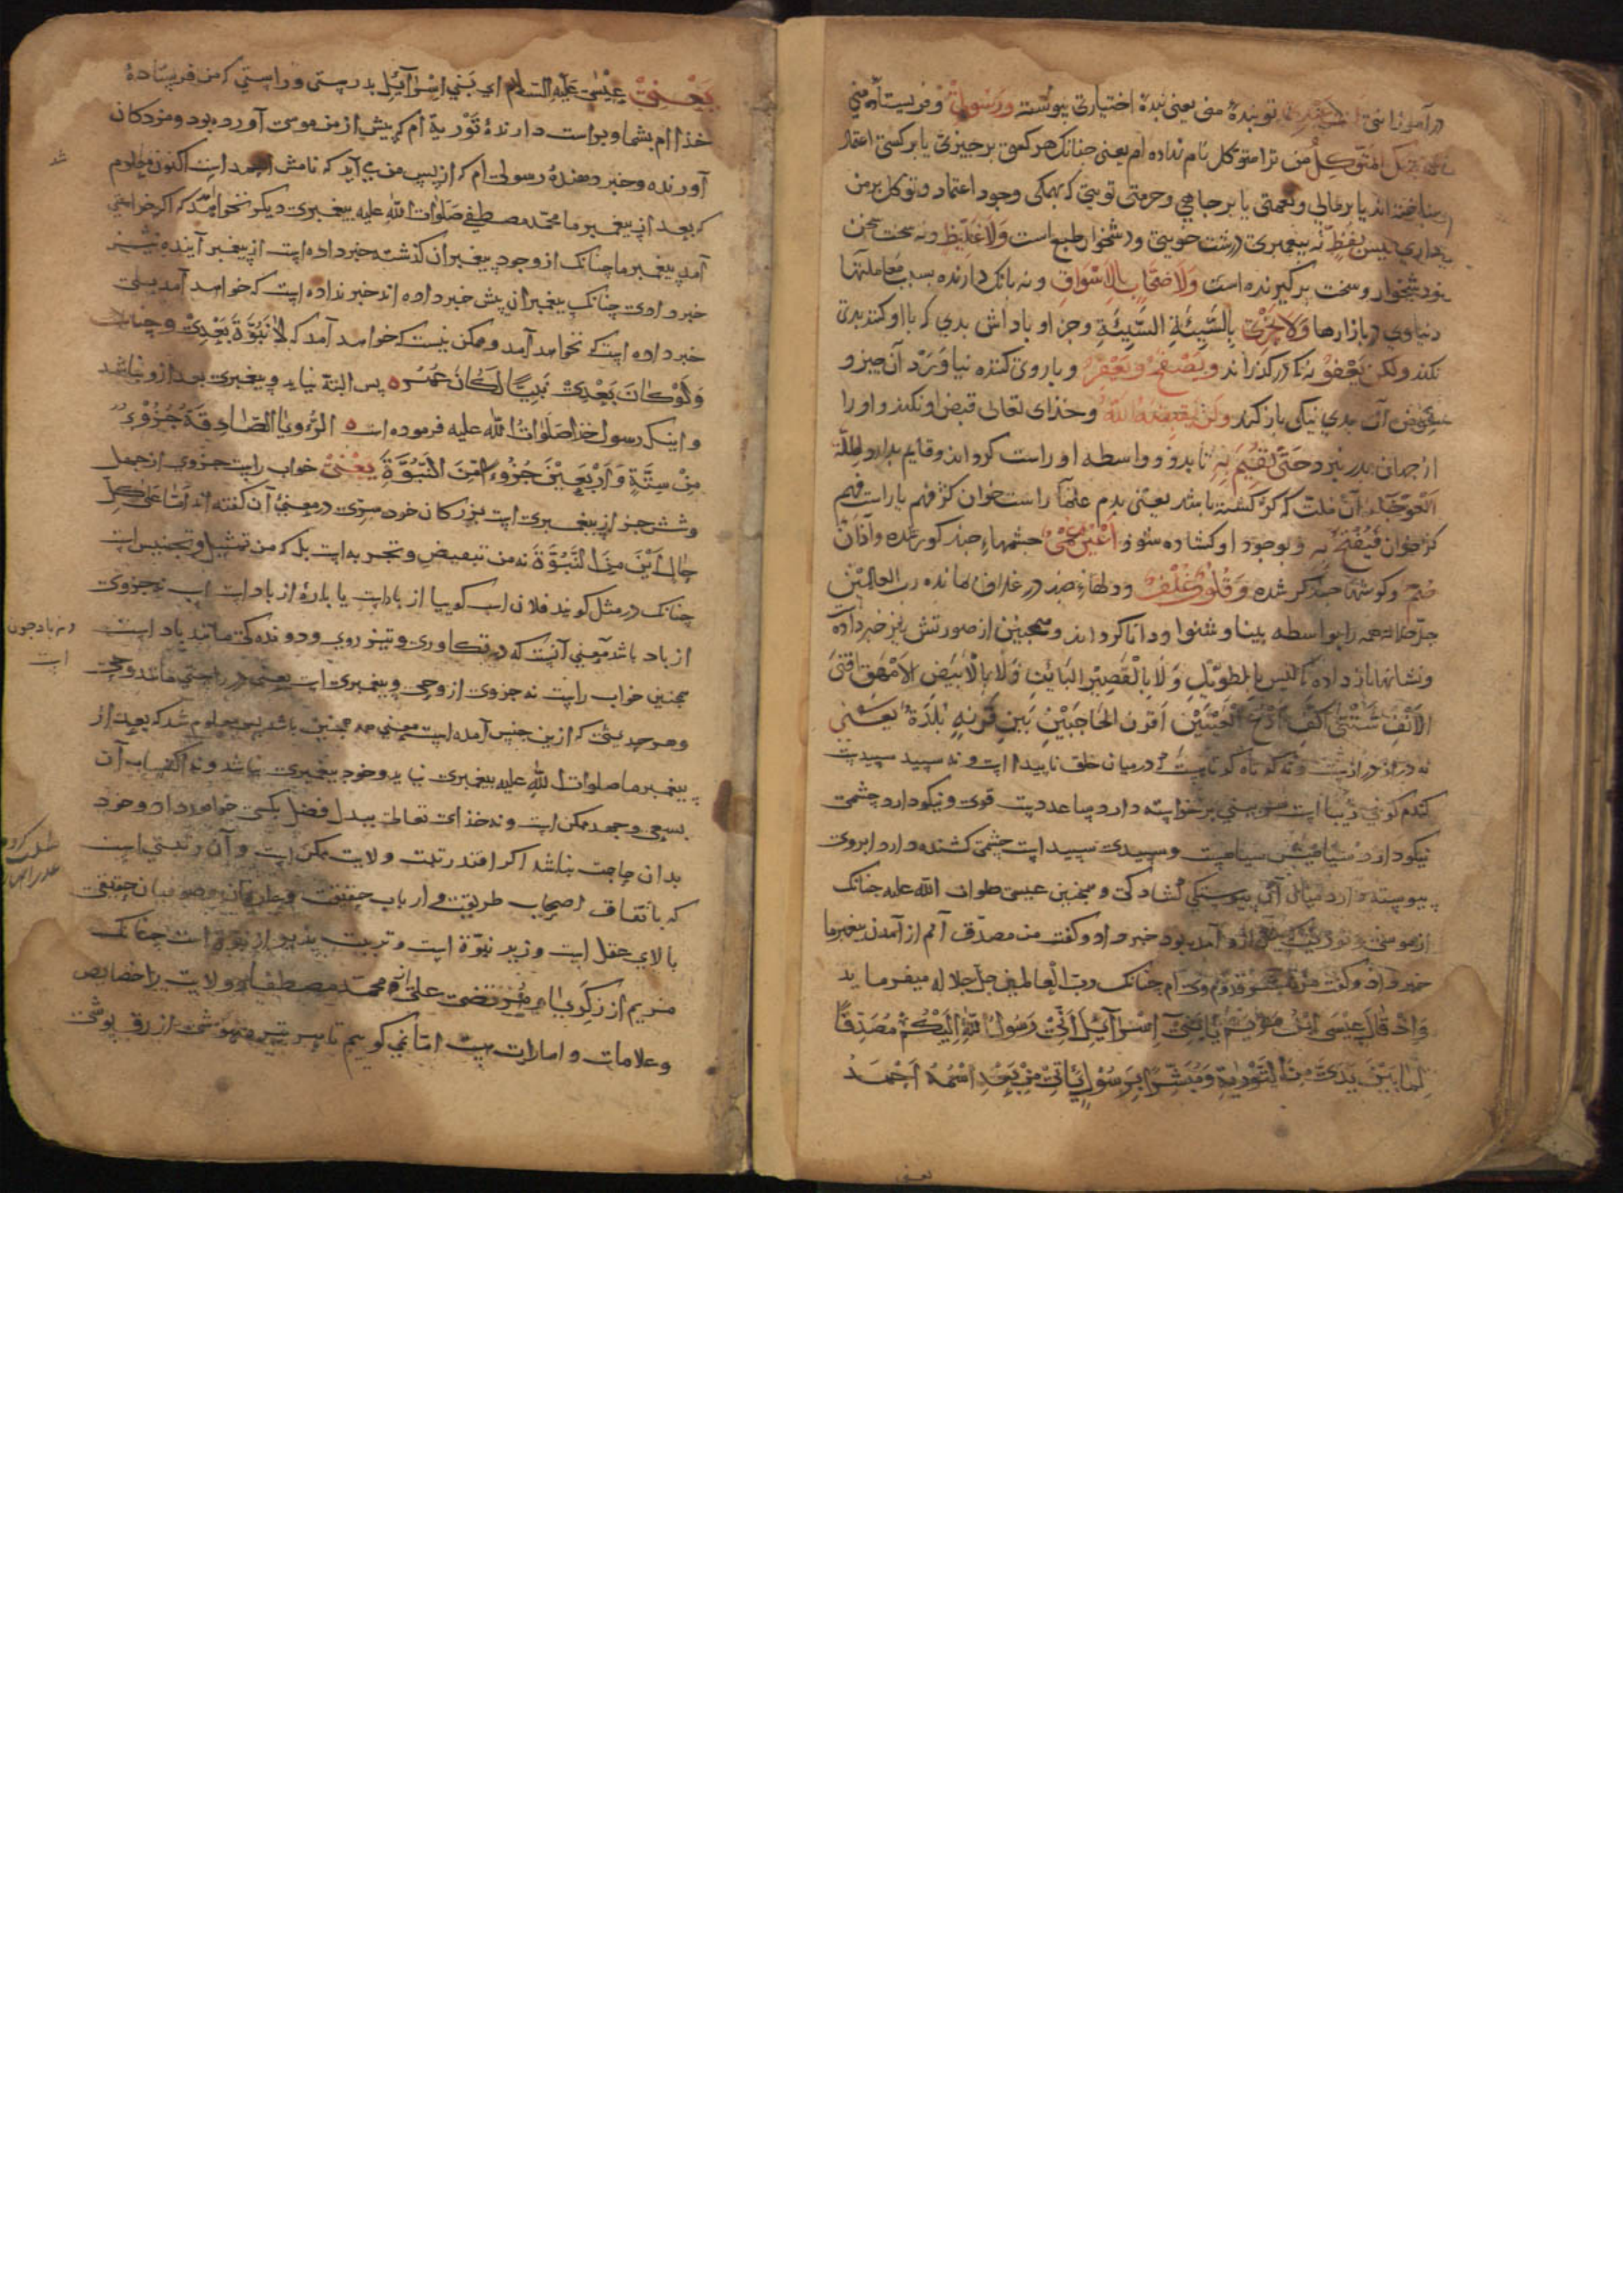 تو بندهٔ منی یعنی بندهٔ اختیاری پیوسته ورسولی و فریستادهٔ منی
المتوکل من ترا متوکل نام نداده ام یعنی چنانک هر کسی بر چیزی یا بر کسی اعتماد
یا بر مالی و نعمتی یا بر جاهی و حرمتی تویی که بهمکی وجود اعتماد و توکل بر من
داری لیس بفظ نه پیغمبری درشت خویی و دشخوار طبع است ولا غلیظ و نه سخت سخن
و سخت برکیرنده است ولا صخاب بالاسواق و نه بانک دارنده بسبب معاملتها
دنیاوی در بازارها ولا یجزی بالسیئة السیئة و جز او باداش بدی که با او کنند بدی
نکند ولکن یعفو درکذراند ویصفح ویغفر و باروی کننده نیاورد آن چیز و
بعوض آن بدی نیکی باز کند ولن یقبضه الله و خذای تعالی قبض او نکند و او را
از جهان بدر نبرد حتی یقیم به تا بدو و واسطه او راست کرداند و قایم بدارد الملة
العوجاء آن ملت که کژ کشته باشد یعنی
کژ خوان فیفتح به و بوجود او کشاده شود اعین عمی چشمهاء چند کور شده وآذان
صم و کوشهاء چند کر شده وقلوب غلف و دلهاء چند در غلاف مانده رب العالمین
همه را بواسطه بینا و شنوا و دانا کرداند و همچنین از صورتش نیز خبر داده
و نشانها باز داده که لیس بالطویل ولا بالقصیر البائن ولا بالابیض الامهق اقنی
الانف اقرن الحاجبین بین قرنه بلدة یعنی
نه دراز درازست و نه کوتاه کوتاهست که در میان خلق ناپیدا است و نه سپید سپیدست
کندم کونی زیبا است بینی برخواسته دارد ساعد دست قوی و نیکو دارد چشمی
نیکو دارد سیاهیش سیاهست و سپیدی سپید است چشمی کشنده دارد ابروی
پیوسته دارد میان آن پیوستکی کشادکی و همچنین عیسی صلوات الله علیه چنانک
از موسی و توریت آمده بود خبر داد و کفت من مصدق آنم از آمدن پیغمبر ما
خبر داد و کفت من مبشر قدوم وی ام چنانک رب العالمین جل جلاله میفرماید
وإذ قال عیسی ابن مریم یا بنی إسرائیل إنی رسول الله إلیکم مصدقا
لما بین یدی من التوریة ومبشرا برسول یأتی من بعدی اسمه احمد
یعنی
یعنی عیسی علیه السلام ای بنی اسرائیل بدرستی و راستی که من فریستادهٔ
خذاام بشما و براست دارندهٔ توریة ام که پیش از من موسی آورده بود و مژدکان
آورنده و خبر دهندهٔ رسولی ام که از پس من می آید که نامش احمد است اکنون معلوم
شد
که بعد از پیغمبر ما محمد مصطفی صلوات الله علیه پیغمبری دیکر نخواهد آمد که اکر خواستی
آمد پیغمبر ما چنانک از وجود پیغمبران کذشته خبر داده است از پیغمبر آینده نیز
خبر دادی چنانک پیغمبران پیش خبر داده اند خبر نداده است که خواهد آمد بلی
خبر داده است که نخواهد آمد و ممکن نیست که خواهد آمد که لا نبوة بعدی و چنانک
ولو کان بعدی نبیا لکان عمر پس البته نیاید و پیغمبری بعد ازو نباشد
و اینک رسول خذا صلوات الله علیه فرموده است الرؤیا الصادقة جزوء
من ستة واربعین جزوء من النبوة یعنی خواب راست جزوی از چهل
و شش جز از پیغمبری است بزرکان خود در معنی آن کفته اند
من النبوة نه من تبعیض و تجزیه است بلک من تمثیل و تجنیس است
چنانک در مثل کویند فلان اسب کوییا از باد است یا پارهٔ از باد است اسب نه جزوی
از باد باشد معنی آنست که در تکاوری و تیز روی و دوندکی مانند باد است
و نه باد چون
است
همچنین خواب راست نه جزوی از وحی و پیغمبری است یعنی در راستی مانند وحی
و هر حدیثی که ازین جنس آمده است معنی همه همچنین باشد پس معلوم شد که بعد از
پیغمبر ما صلوات الله علیه پیغمبری نیاید و خود پیغمبری نباشد و نه اکتساب آن
بسعی و جهد ممکن است و نه خذای تعالی ببذل فضل بکسی خواهد داد و خرد
بدان حاجت نباشد اکر افتد رتبت ولایت ممکن است و آن رتبتی است
که باتفاق اصحاب طریقت و ارباب حقیقت
بالای عقل است و زیر نبوة است و تربیت پذیر از نبوة است چنانک
مریم از زکریا و مرتضی علی از محمد مصطفی و ولایت را خصایص
و علامات و امارات است اما نمی کوییم تا هر ازرق پوشی